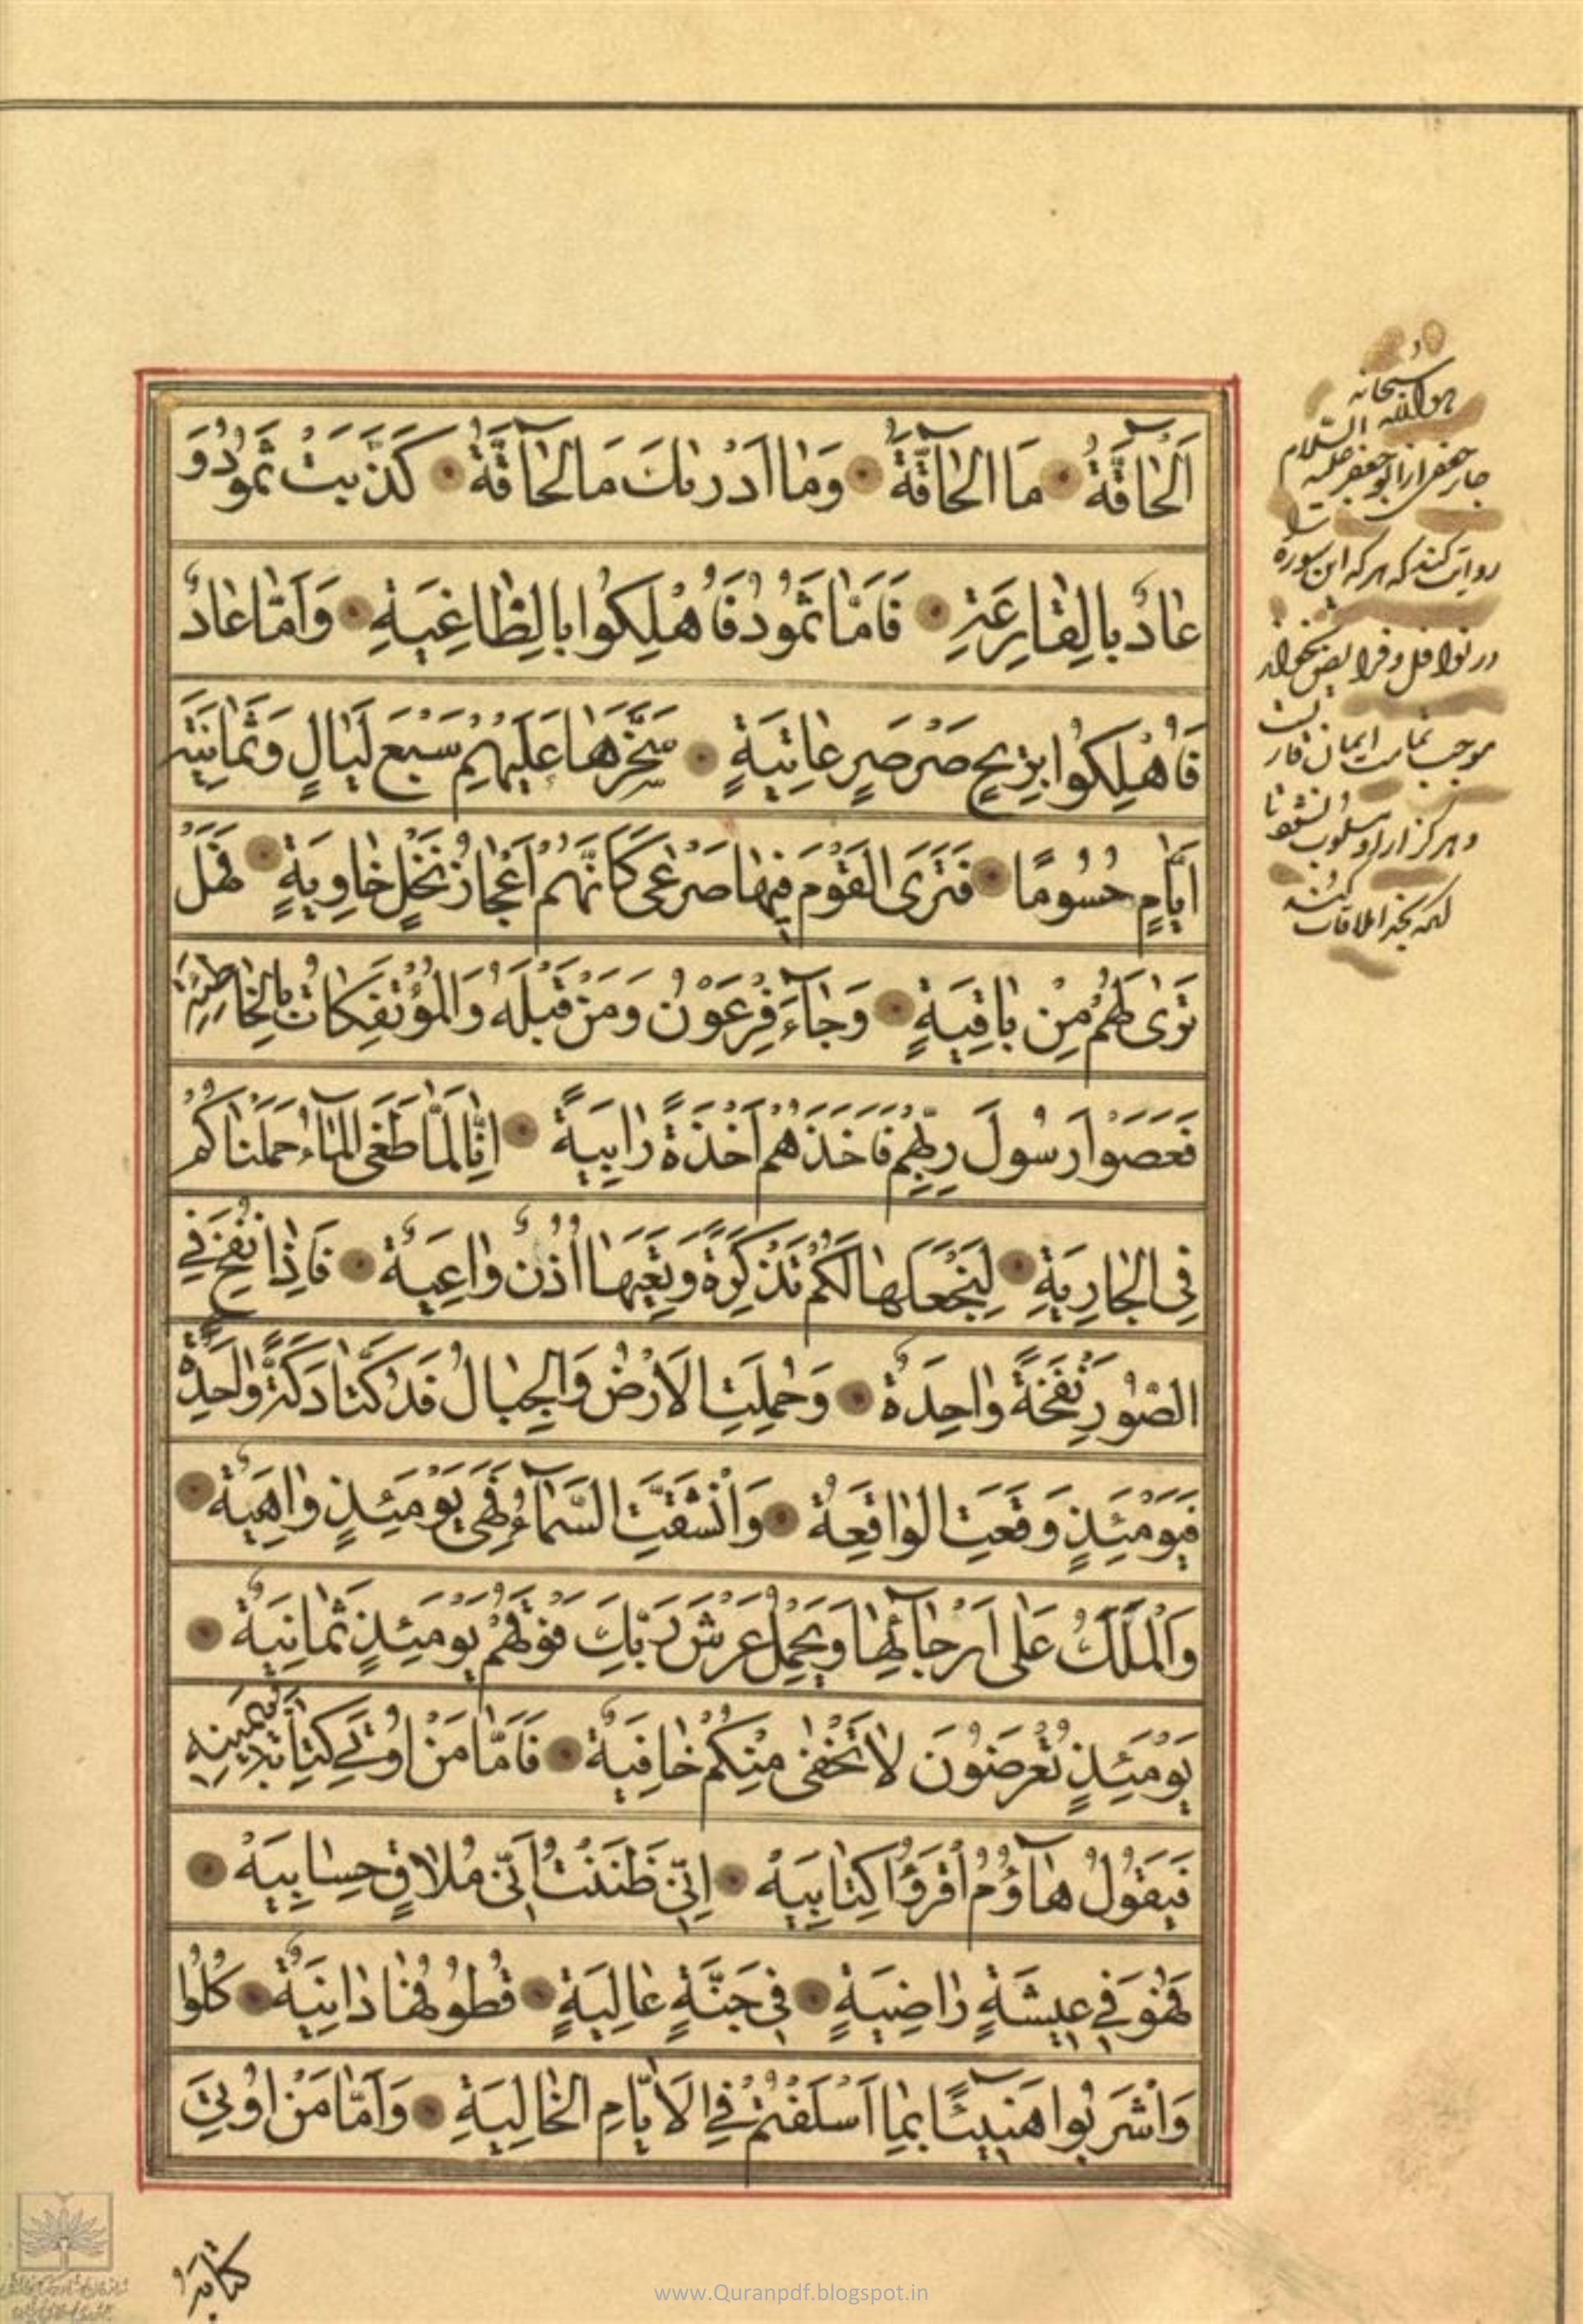 اَلْحٰاقَّةُ مَا الْحٰاقَّةُ وَمٰا اَدْرٰيكَ مَا الْحٰاقَّةُ كَذَّبَتْ ثَمُودُ وَ
عٰادٌ بِالْقٰارِعَةِ فَاَمّٰا ثَمُودُ فَاُهْلِكُوا بِالطّٰاغِيَةِ وَاَمّٰا عٰادٌ
فَاُهْلِكُوا بِرِيحٍ صَرْصَرٍ عٰاتِيَةٍ سَخَّرَهٰا عَلَيْهِمْ سَبْعَ لَيٰالٍ وَثَمٰانِيَةَ
اَيّٰامٍ حُسُومًا فَتَرَى الْقَوْمَ فِيهٰا صَرْعٰى كَاَنَّهُمْ اَعْجٰازُ نَخْلٍ خٰاوِيَةٍ فَهَلْ
تَرٰى لَهُمْ مِنْ بٰاقِيَةٍ وَجٰآءَ فِرْعَوْنُ وَمَنْ قَبْلَهُ وَالْمُؤْتَفِكٰاتُ بِالْخٰاطِئَةِ
فَعَصَوْا رَسُولَ رَبِّهِمْ فَاَخَذَهُمْ اَخْذَةً رٰابِيَةً اِنّٰا لَمّٰا طَغَى الْمٰآءُ حَمَلْنٰاكُمْ
فِى الْجٰارِيَةِ لِنَجْعَلَهٰا لَكُمْ تَذْكِرَةً وَتَعِيَهٰا اُذُنٌ وٰاعِيَةٌ فَاِذٰا نُفِخَ فِي
الصُّورِ نَفْخَةٌ وٰاحِدَةٌ وَحُمِلَتِ الْاَرْضُ وَالْجِبٰالُ فَدُكَّتٰا دَكَّةً وٰاحِدَةً
فَيَوْمَئِذٍ وَقَعَتِ الْوٰاقِعَةُ وَانْشَقَّتِ السَّمٰآءُ فَهِىَ يَوْمَئِذٍ وٰاهِيَةٌ
وَالْمَلَكُ عَلٰى اَرْجٰآئِهٰا وَيَحْمِلُ عَرْشَ رَبِّكَ فَوْقَهُمْ يَوْمَئِذٍ ثَمٰانِيَةٌ
يَوْمَئِذٍ تُعْرَضُونَ لٰا تَخْفٰى مِنْكُمْ خٰافِيَةٌ فَاَمّٰا مَنْ اُوتِيَ كِتٰابَهُ بِيَمِينِهِ
فَيَقُولُ هٰآؤُمُ اقْرَؤُا كِتٰابِيَهْ اِنِّى ظَنَنْتُ اَنِّى مُلٰاقٍ حِسٰابِيَهْ
فَهُوَ فِي عِيشَةٍ رٰاضِيَةٍ فِى جَنَّةٍ عٰالِيَةٍ قُطُوفُهٰا دٰانِيَةٌ كُلُوا
وَاشْرَبُوا هَنِيٓئًا بِمٰا اَسْلَفْتُمْ فِي الْاَيّٰامِ الْخٰالِيَةِ وَاَمّٰا مَنْ اُوتِيَ
كتابه
هو الله سبحانه
جابر جعفى از ابو جعفر عليه السلام
روايت كند كه هركه اين سوره را
در نوافل و فرايض بخواند
موجب ايمان
و هركز از او مسلوب نشود تا
بخدا ملاقات كند
www.Quranpdf.blogspot.in